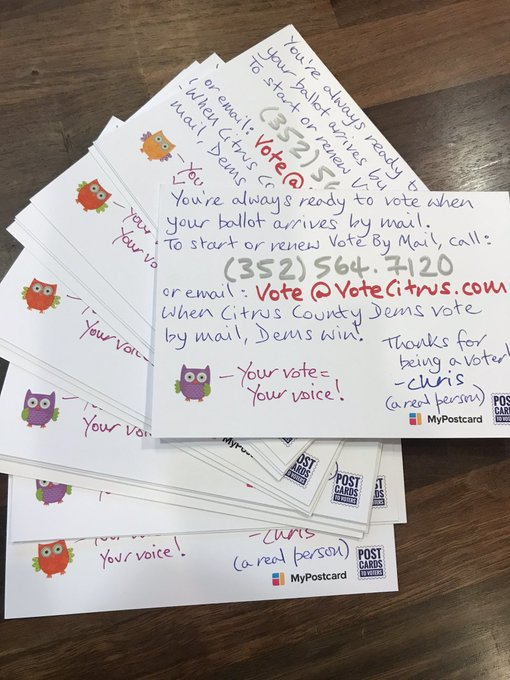 You're always ready to vote when
your ballot arrives by mail.
To start or renew Vote By Mail, call:
(352) 564.7120
or email: Vote@VoteCitrus.com
When Citrus County Dems vote
by mail, Dems win!
Thanks for
being a voter!
-Chris
(a real person)
- Your vote =
Your voice!
MyPostcard
You're always ready t
your ballot arrives b
To start or renew V
(352) 56
or email: Vote@
When Citrus Co
mail, Dems
Your
Your vo
Your voice
Your vo
Your voice!
- Chris
(a real person)
MyPostcard
POST
CARDS
TO VOTERS
POST
CARDS
TO VOTERS